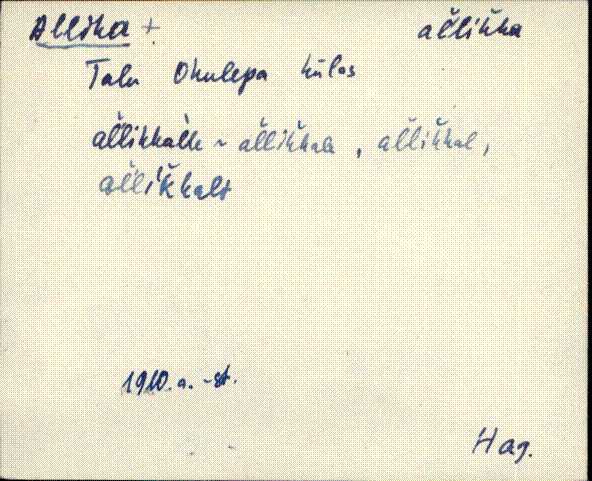 Allika + alĺikka
Talu Ohulepa külas
alĺikkalle ~ alĺikkale, alĺikkal,
alĺikkalt
1910. a. -st.
Hag.